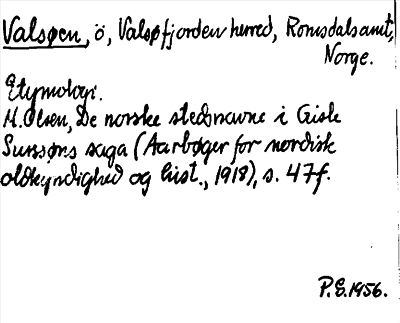 Valsøen, ö, Valsøfjorden herred, Romsdalsamt,
Norge.
Etymologi.
M. Olsen, De norske stedsnavne i Gisle
Surssøns saga (Aarbøger for nordisk
oldkyndighed og hist., 1918), s. 47 f.
P.E. 1956.